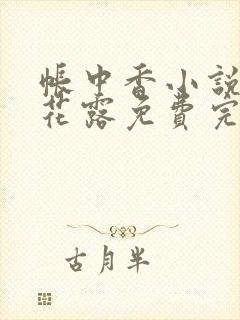 帐中香小説
花露免費完
古月半